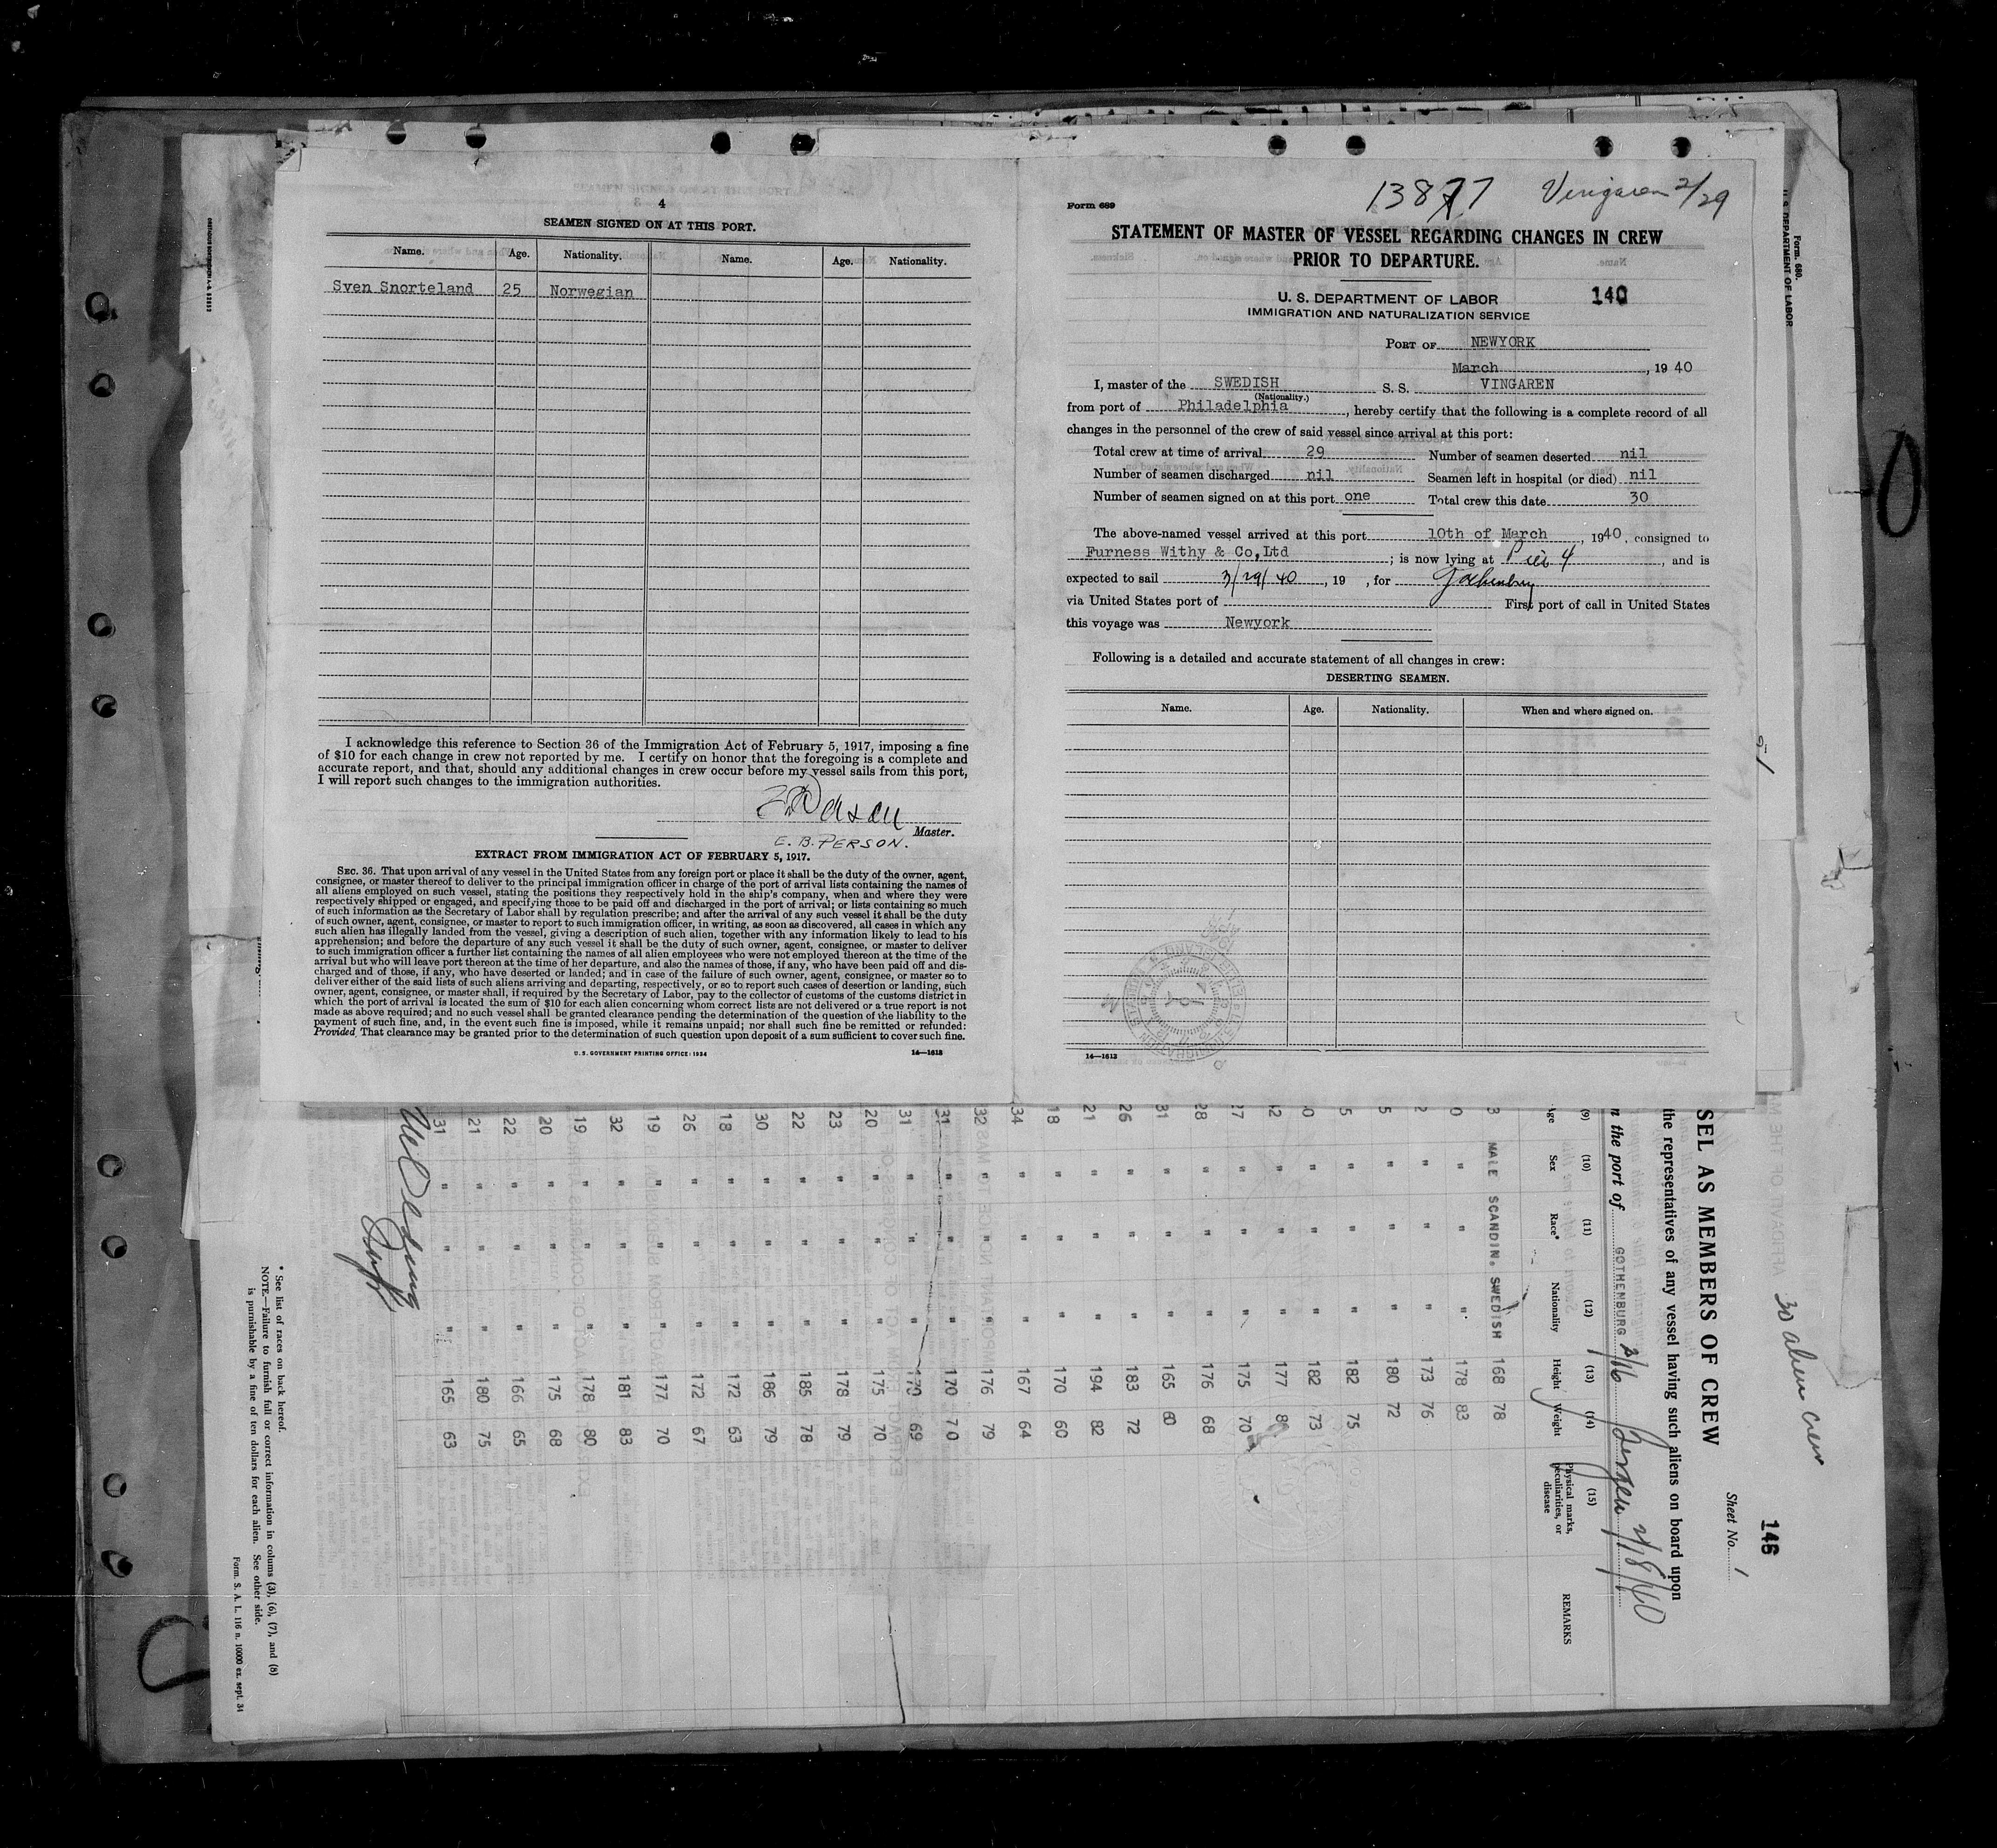 4
SEAMEN SIGNED ON AT THIS PORT.
Name. Age. Nationality. Name. Age. Nationality.
Sven Snorteland 25 Norwegian
I acknowledge this reference to Section 36 of the Immigration Act of February 5, 1917, imposing a fine
of $10 for each change in crew not reported by me. I certify on honor that the foregoing is a complete and
accurate report, and that, should any additional changes in crew occur before my vessel sails from this port,
I will report such changes to the immigration authorities.
Master.
E. B. PERSON.
EXTRACT FROM IMMIGRATION ACT OF FEBRUARY 5, 1917.
SEC. 36. That upon arrival of any vessel in the United States from any foreign port or place it shall be the duty of the owner, agent,
consignee, or master thereof to deliver to the principal immigration officer in charge of the port of arrival lists containing the names of
all aliens employed on such vessel, stating the positions they respectively hold in the ship's company, when and where they were
respectively shipped or engaged, and specifying those to be paid off and discharged in the port of arrival; or lists containing so much
of such information as the Secretary of Labor shall by regulation prescribe; and after the arrival of any such vessel it shall be the duty
of such owner, agent, consignee, or master to report to such immigration officer, in writing, as soon as discovered, all cases in which any
such alien has illegally landed from the vessel, giving a description of such alien, together with any information likely to lead to his
apprehension; and before the departure of any such vessel it shall be the duty of such owner, agent, consignee, or master to deliver
to such immigration officer a further list containing the names of all alien employees who were not employed thereon at the time of the
arrival but who will leave port thereon at the time of her departure, and also the names of those, if any, who have been paid off and dis-
charged and of those, if any, who have deserted or landed; and in case of the failure of such owner, agent, consignee, or master so to
deliver either of the said lists of such aliens arriving and departing, respectively, or so to report such cases of desertion or landing, such
owner, agent, consignee, or master shall, if required by the Secretary of Labor, pay to the collector of customs of the customs district in
which the port of arrival is located the sum of $10 for each alien concerning whom correct lists are not delivered or a true report is not
made as above required; and no such vessel shall be granted clearance pending the determination of the question of the liability to the
payment of such fine, and, in the event such fine is imposed, while it remains unpaid; nor shall such fine be remitted or refunded:
Provided, That clearance may be granted prior to the determination of such question upon deposit of a sum sufficient to cover such fine.
U. S. GOVERNMENT PRINTING OFFICE: 1934 14—1613
13877 2/29
Form 689
STATEMENT OF MASTER OF VESSEL REGARDING CHANGES IN CREW
PRIOR TO DEPARTURE.
U. S. DEPARTMENT OF LABOR 140
IMMIGRATION AND NATURALIZATION SERVICE
PORT OF NEWYORK
March, 1940
I, master of the SWEDISH S. S. VINGAREN
(Nationality.)
from port of Philadelphia, hereby certify that the following is a complete record of all
changes in the personnel of the crew of said vessel since arrival at this port:
Total crew at time of arrival 29 Number of seamen deserted nil
Number of seamen discharged nil Seamen left in hospital (or died) nil
Number of seamen signed on at this port one Total crew this date 30
The above-named vessel arrived at this port 10th of March, 1940, consigned to
Furness Withy & Co,Ltd; is now lying at Pier 4, and is
expected to sail 3/29/40, 19 , for Gothenburg
via United States port of First port of call in United States
this voyage was Newyork
Following is a detailed and accurate statement of all changes in crew:
DESERTING SEAMEN.
Name. Age. Nationality. When and where signed on.
14—1613
Form 680.
U. S. DEPARTMENT OF LABOR
30 alien crew
146
Sheet No. 1
SEL AS MEMBERS OF CREW
the representatives of any vessel having such aliens on board upon
n the port of GOTHENBURG 2/16 Bergen 2/18/40
(9) (10) (11) (12) (13) (14) (15)
Age Sex Race* Nationality Height Weight Physical marks, peculiarities, or disease REMARKS
3 MALE SCANDIN. SWEDISH 168 78
0 " " " 178 83
2 " " " 173 76
5 " " " 180 72
5 " " " 182 75
0 " " " 182 73
42 " " " 177 80
27 " " " 175 70
28 " " " 176 68
31 " " " 165 60
26 " " " 183 72
21 " " " 194 82
18 " " " 170 60
34 " " " 167 64
32 " " " 176 79
31 " " " 170 70
31 " " " 170 69
20 " " " 175 70
23 " " " 178 79
22 " " " 185 78
30 " " " 186 79
18 " " " 172 63
26 " " " 172 67
19 " " " 177 70
32 " " " 181 83
19 " " " 178 80
20 " " " 175 68
22 " " " 166 65
21 " " " 180 75
31 " " " 165 63
* See list of races on back hereof.
NOTE.—Failure to furnish full or correct information in colums (3), (6), (7), and (8)
is punishable by a fine of ten dollars for each alien. See other side.
Form. S. A. L. 116 n. 10000 ex. sept. 34